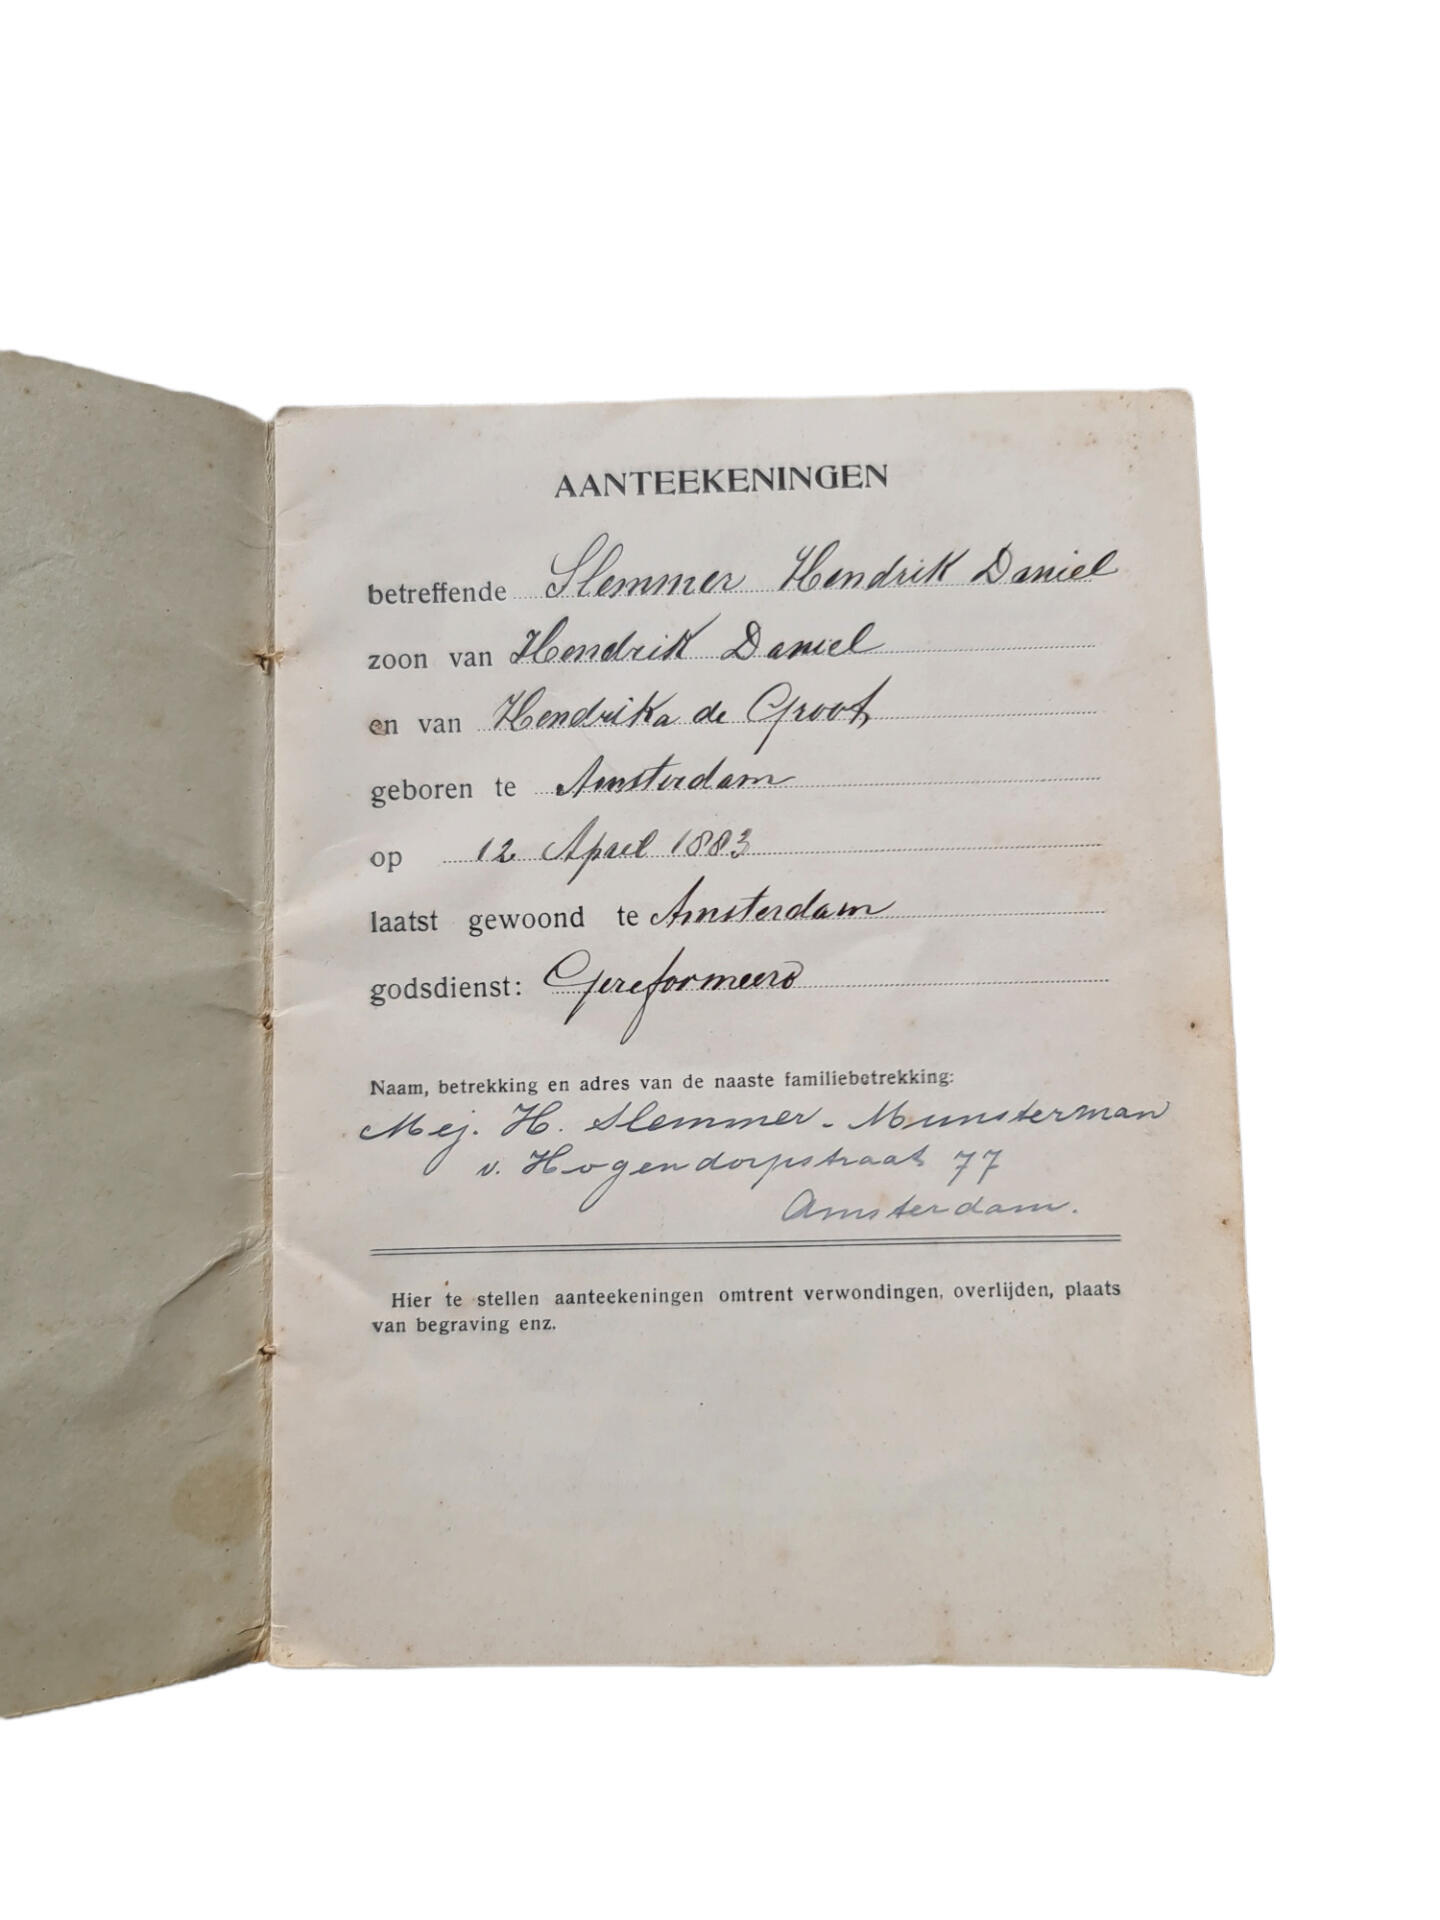 AANTEEKENINGEN
betreffende Slemmer Hendrik Daniel
zoon van Hendrik Daniel
en van Hendrika de Groot,
geboren te Amsterdam
op 12 April 1883
laatst gewoond te Amsterdam
godsdienst: Gereformeerd
Naam, betrekking en adres van de naaste familiebetrekking:
Mej. H. Slemmer - Munsterman
v. Hogendorpstraat 77
Amsterdam.
Hier te stellen aanteekeningen omtrent verwondingen, overlijden, plaats
van begraving enz.